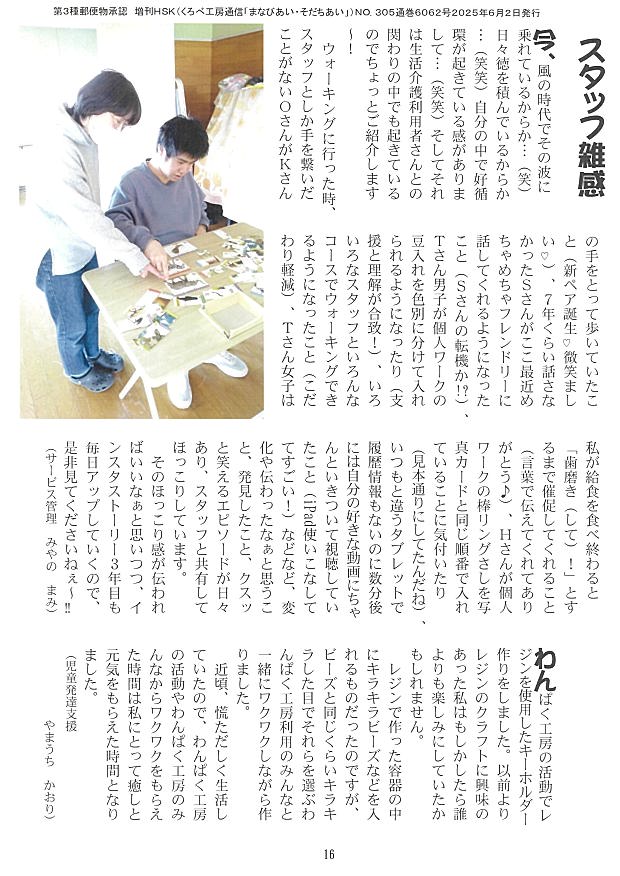 第3種郵便物承認 増刊HSK(くろべ工房通信「まなびあい・そだちあい」)NO.305通巻6062号2025年6月2日発行
スタッフ雑感
今、風の時代でその波に
乗れているからか…(笑)
日々徳を積んでいるからか
…(笑笑)自分の中で好循
環が起きている感がありま
して…(笑笑)そしてそれ
は生活介護利用者さんとの
関わりの中でも起きている
のでちょっとご紹介します
～！
ウォーキングに行った時、
スタッフとしか手を繋いだ
ことがないOさんがKさん
の手をとって歩いていたこ
と(新ペア誕生♡微笑まし
い♡)、7年くらい話さな
かったSさんがここ最近め
ちゃめちゃフレンドリーに
話してくれるようになった
こと(Sさんの転機か!?)、
Tさん男子が個人ワークの
豆入れを色別に分けて入れ
られるようになったり(支
援と理解が合致！)、いろ
いろなスタッフといろんな
コースでウォーキングでき
るようになったこと(こだ
わり軽減)、Tさん女子は
私が給食を食べ終わると
「歯磨き(して)！」とす
るまで催促してくれること
(言葉で伝えてくれてあり
がとう♪)、Hさんが個人
ワークの棒リングさしを写
真カードと同じ順番で入れ
ていることに気付いたり
(見本通りにしてたんだね)、
いつもと違うタブレットで
履歴情報もないのに数分後
には自分の好きな動画にちゃ
んといきついて視聴してい
たこと(iPad使いこなして
てすごい！)などなど、変
化や伝わったなぁと思うこ
と、発見したこと、クスッ
と笑えるエピソードが日々
あり、スタッフと共有して
ほっこりしています。
そのほっこり感が伝われ
ばいいなぁと思いつつ、イ
ンスタストーリー3年目も
毎日アップしていくので、
是非見てくださいねぇ～!!
(サービス管理 みやの まみ)
わんぱく工房の活動でレ
ジンを使用したキーホルダー
作りをしました。以前より
レジンのクラフトに興味の
あった私はもしかしたら誰
よりも楽しみにしていたか
もしれません。
レジンで作った容器の中
にキラキラビーズなどを入
れるものだったのですが、
ビーズと同じくらいキラキ
ラした目でそれらを選ぶわ
んぱく工房利用のみんなと
一緒にワクワクしながら作
りました。
近頃、慌ただしく生活し
ていたので、わんぱく工房
の活動やわんぱく工房のみ
んなからワクワクをもらえ
た時間は私にとって癒しと
元気をもらえた時間となり
ました。
(児童発達支援
やまうち かおり)
16